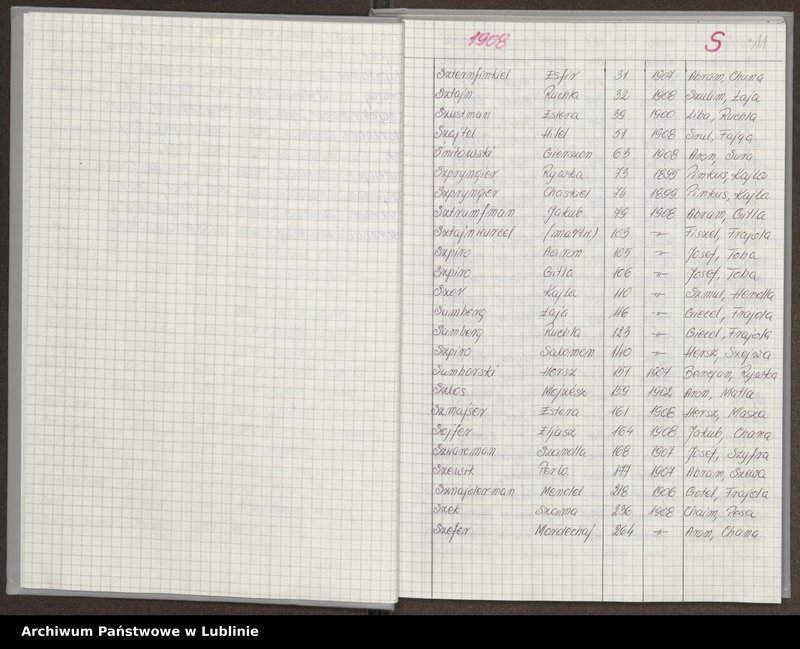 1908 S M
Szternfinkiel Esfir 31 1907 Abram, Chana
Sztajn Ruchla 32 1908 Szulim, Łaja
Szustman Estera 39 1900 Liba, Ruchla
Szejtel Hilel 51 1908 Srul, Fajga
Śnitowski Gierszon 63 1908 Aron, Sura
Szprynger Rywka 73 1895 Pinkus, Kajla
Szprynger Chaskiel 74 1899 Pinkus, Kajla
Sztrumfman Jakub 79 1908 Abram, Gitla
(martw.) 103 -"- Fiszel, Frajda
Szpiro Aaron 105 -"- Josef, Toba
Szpiro Gitla 106 -"- Josef, Toba
Szer Kajla 110 -"- Szmul, Hendla
Samberg Łaja 116 -"- Giecel, Frajda
Samberg Ruchla 123 -"- Giecel, Frajda
Szpiro Salomon 140 -"- Hersz Szejwa
Samborski Hersz 151 1907 Rywka
Szlos Mojżesz 159 1902 Aron, Matla
Szmajser Estera 161 1908 Hersz, Masza
Sojfer Eljasz 164 1908 Jakub, Chana
Szwarcman 168 1907 Josef, Szyfra
Szewerk Perla 177 1907 Abram, Szewa
Sznajderman Mendel 218 1906 Gotel, Frajda
Szek Szaima 236 1908 Chaim, Pesa
Szefer Mordechaj 264 -"- Aron, Chana
Archiwum Państwowe w Lublinie